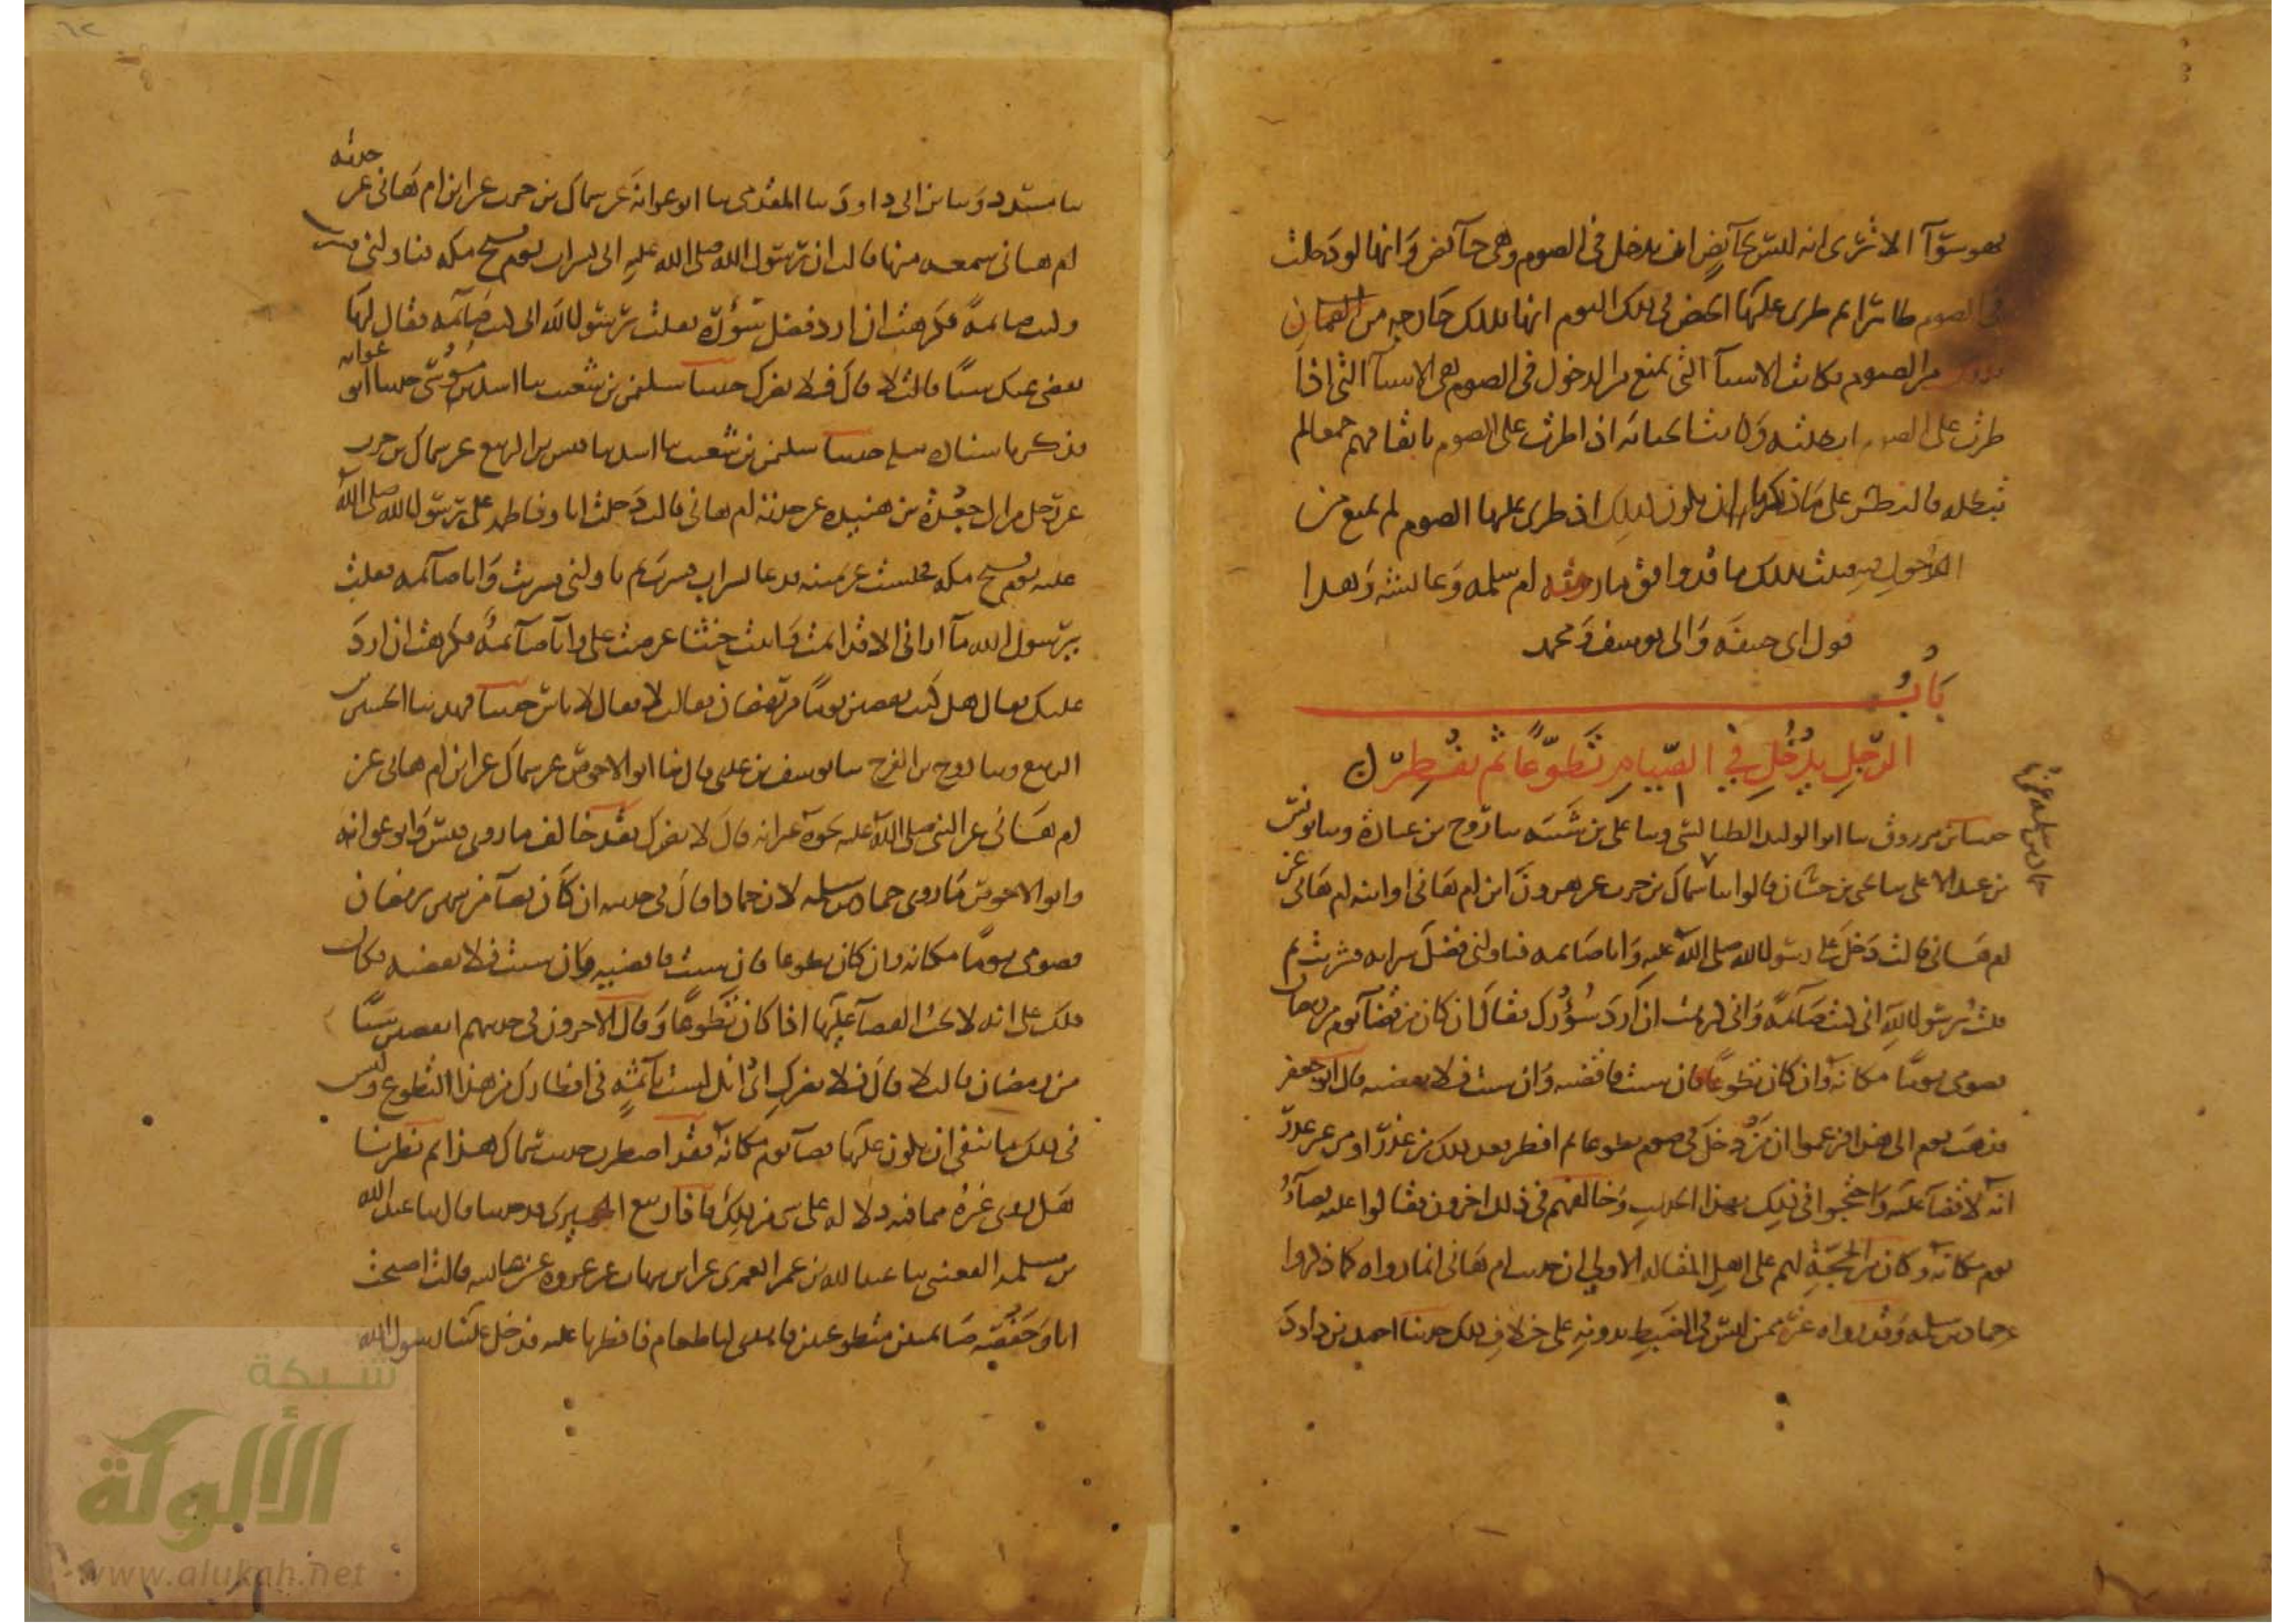 فهو سوآ الا ترى انه ليس لحآيض ان تدخل في الصوم وهي حآئض وانها لو دخلت
في الصوم طاهرا ثم طرى عليها الحيض في ذلك اليوم انها بذلك خارجه من
من الصوم فكانت الاشيآ التي تمنع من الدخول في الصوم هي الاشيآ التي اذا
طرت على الصوم ابطلته وكانت الجنابه اذا طرت على الصوم باتفاقهم جميعا لم
تبطله فالنظر على ما ذكرنا ان يكون كذلك اذا طرى عليها الصوم لم تمنع من
الدخول فيه فثبت بذلك ما قد وافق ما روته ام سلمه وعائشه وهذا
قول ابي حنيفه وابي يوسف ومحمد
باب
الرجل يدخل في الصيام تطوعا ثم يفطر
حدثنا ابن مرزوق نا ابو الوليد الطيالسي ونا علي بن شيبه نا روح بن عباده ونا يونس
حماد بن سلمه عن
بن عبد الاعلى نا يحيى بن حسان قالوا نا سماك بن حرب عن هرون ابن ام هاني او ابنه ام هاني عن
ام هاني قالت دخل علي رسول الله صلى الله عليه وانا صائمه فناولني فضل شرابه فشربت ثم
قلت يرسول الله اني كنت صآئمة واني كرهت ان ارد سؤرك فقال ان كان من قضآ يوم من رمضان
فصومي يوما مكانه وان كان تطوعا فان شئت فاقضيه وان شئت فلا تقضيه قال ابو جعفر
فذهب قوم الى هذا فزعموا ان من دخل في صوم تطوعا ثم افطر بعد ذلك من عذر او من غير عذر
انه لا قضآ عليه واحتجوا في ذلك بهذا الحديث وخالفهم في ذلك اخرون فقالوا عليه قضآء
يوم مكانه وكان من الحجة لهم على اهل المقاله الاولى ان حديث ام هاني انما رواه كما ذكروا
حماد بن سلمه وقد رواه غيره ممن ليس في الضبط بدونه على خلاف ذلك حدثنا احمد بن داود
نا مسدد ونا ابن ابي داود نا المقدمي نا ابو عوانه عن سماك بن حرب عن ابن ام هاني عن جدته
ام هاني سمعه منها قالت ان رسول الله صلى الله عليه اتي بشراب يوم فتح مكه فناولني فشربت
وكنت صائمة فكرهت ان ارد فضل سؤره فقلت يرسول الله اني كنت صآئمه فقال لها
تقضي عنك شيئا قالت لا قال فلا يضرك حدثنا سليمن بن شعيب نا اسد بن موسى حدثنا ابو عوانه
فذكر باسناده مثله حدثنا سليمن بن شعيب نا اسد نا قيس بن الربيع عن سماك بن حرب
عن رجل من ال جعدة بن هبيره عن جدته ام هاني قالت دخلت انا وفاطمه على رسول الله صلى الله
عليه يوم فتح مكه فجلست عن يمينه فدعا بشراب فشرب ثم ناولني فشربت وانا صآئمه فقلت
يرسول الله مآ اراني الا قد اثمت واتيت حنثا عرضت علي وانا صآئمة فكرهت ان ارد
عليك فقال هل كنت تقضين يوما من رمضان فقالت لا فقال لا باس حدثنا فهد نا الحسن بن
الربيع ونا روح بن الفرج نا يوسف بن عدي قال نا ابو الاحوص عن سماك عن ابن ام هاني عن
ام هاني عن النبي صلى الله عليه نحوه غير انه قال لا يضرك فقد خالف ما روى قيس وابو عوانه
وابو الاحوص ما روى حماد بن سلمه لان حمادا قال في حديثه ان كان قضآ من شهر رمضان
فصومي يوما مكانه وان كان تطوعا فان شئت فاقضيه وان شئت فلا تقضيه فكان
ذلك على انه لا يجب القضآ عليها اذا كان تطوعا وقال الاخرون في حديثهم اتقضين شيئا
من رمضان قالت لا قال فلا يضرك اي انك لست باثمة في افطارك من هذا التطوع وليس
في ذلك ما ينفي ان يكون عليها قضآ يوم مكانه فقد اضطرب حديث سماك هذا ثم نظرنا
هل روى غيره مما فيه دلاله على شي من ذلك فاذا ربيع الجيزي قد حدثنا قال نا عبد الله
بن مسلمه القعنبي نا عبد الله بن عمر العمري عن ابن شهاب عن عروه عن عائشه قالت اصبحت
انا وحفصه صائمتين متطوعتين فاهدي لنا طعام فافطرنا عليه فدخل علينا رسول الله
شبكة
الألوكة
www.alukah.net